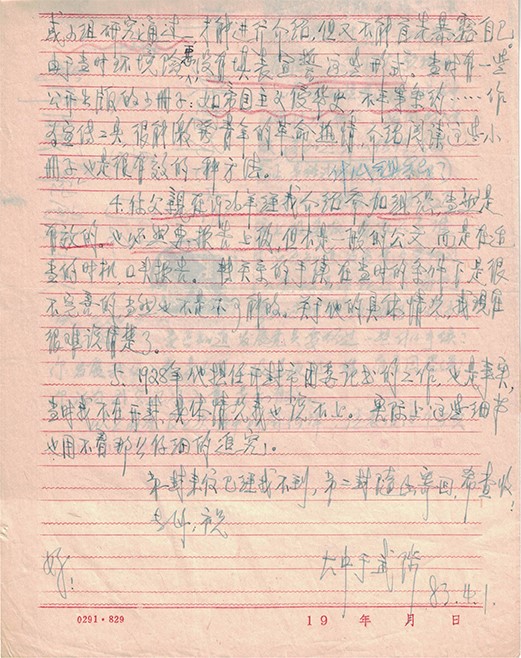 或小组研究通过,才能进行介绍,但又不能首先暴露自己。
由于当时环境险恶,没有填表宣誓这些形式。当时有一些
公开出版的小册子:如帝国主义侵华史、不平等条约……作
为宣传工具很能激发青年的革命热情,介绍阅读这些小
册子也是很有效的一种方法。
4.你父亲在1926年经我介绍参加组织,当然是
有效的。也必要报告上级,但不是一般的公文,而是在适
当的时机,口头报告。转关系的手续在当时的条件下是很
不完善的,当然也不是不了解的。关于他的具体情况,我现在
很难说清楚了。
5.1928年他担任开封市团委书记的工作,也是事实,
当时我不在开封,具体情况我也说不上。实际上这些细节
也用不着那么仔细的追究。
第一封来信已经找不到,第二封随函寄回,希查收!
专此,祝
好!
83.4.1.
0291·829
19 年 月 日